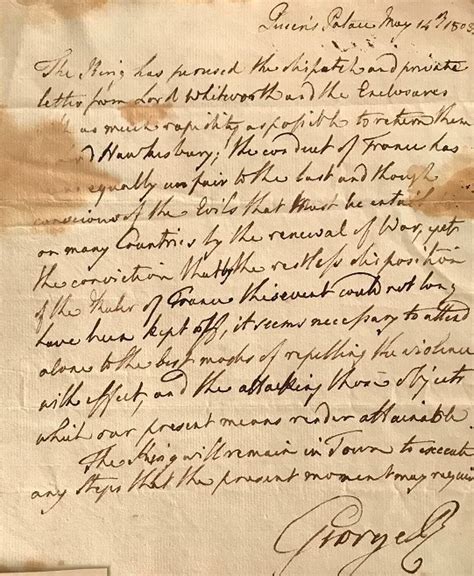 Queen's Palace May 14th 1803.
The King has perused the dispatch and private
letter from Lord Whitworth and the Enclosures
with as much rapidity as possible to return them
Lord Hawkesbury; the conduct of France has
equally unfair to the last and though
conscious of the Evils that must be entail
on many Countries by the renewal of War, yet
the conviction that by the restless disposition
of the Ruler of France this event could not long
have been kept off, it seems necessary to attend
alone to the best modes of repelling the violence
with effect, and the attacking those objects
which our present means render attainable.
The King will remain in Town to execute
any Steps that the present moment may require
George R